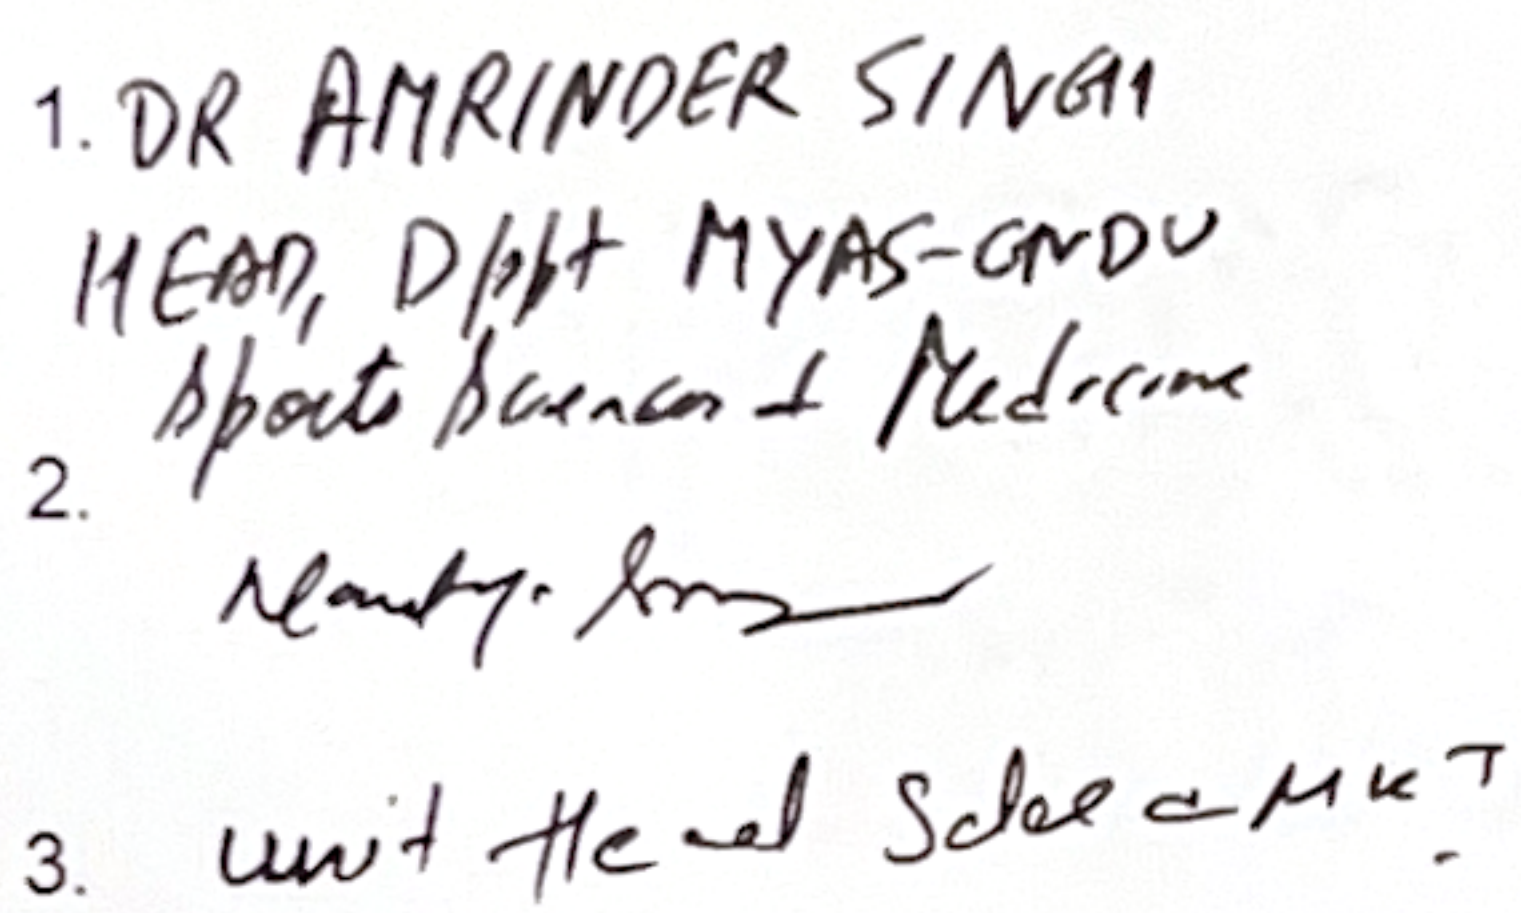 1. DR AMRINDER SINGH
HEAD, Deptt MYAS-GNDU
Sports Sciences & Medicine
2.
3. Unit Head Sales & MKT